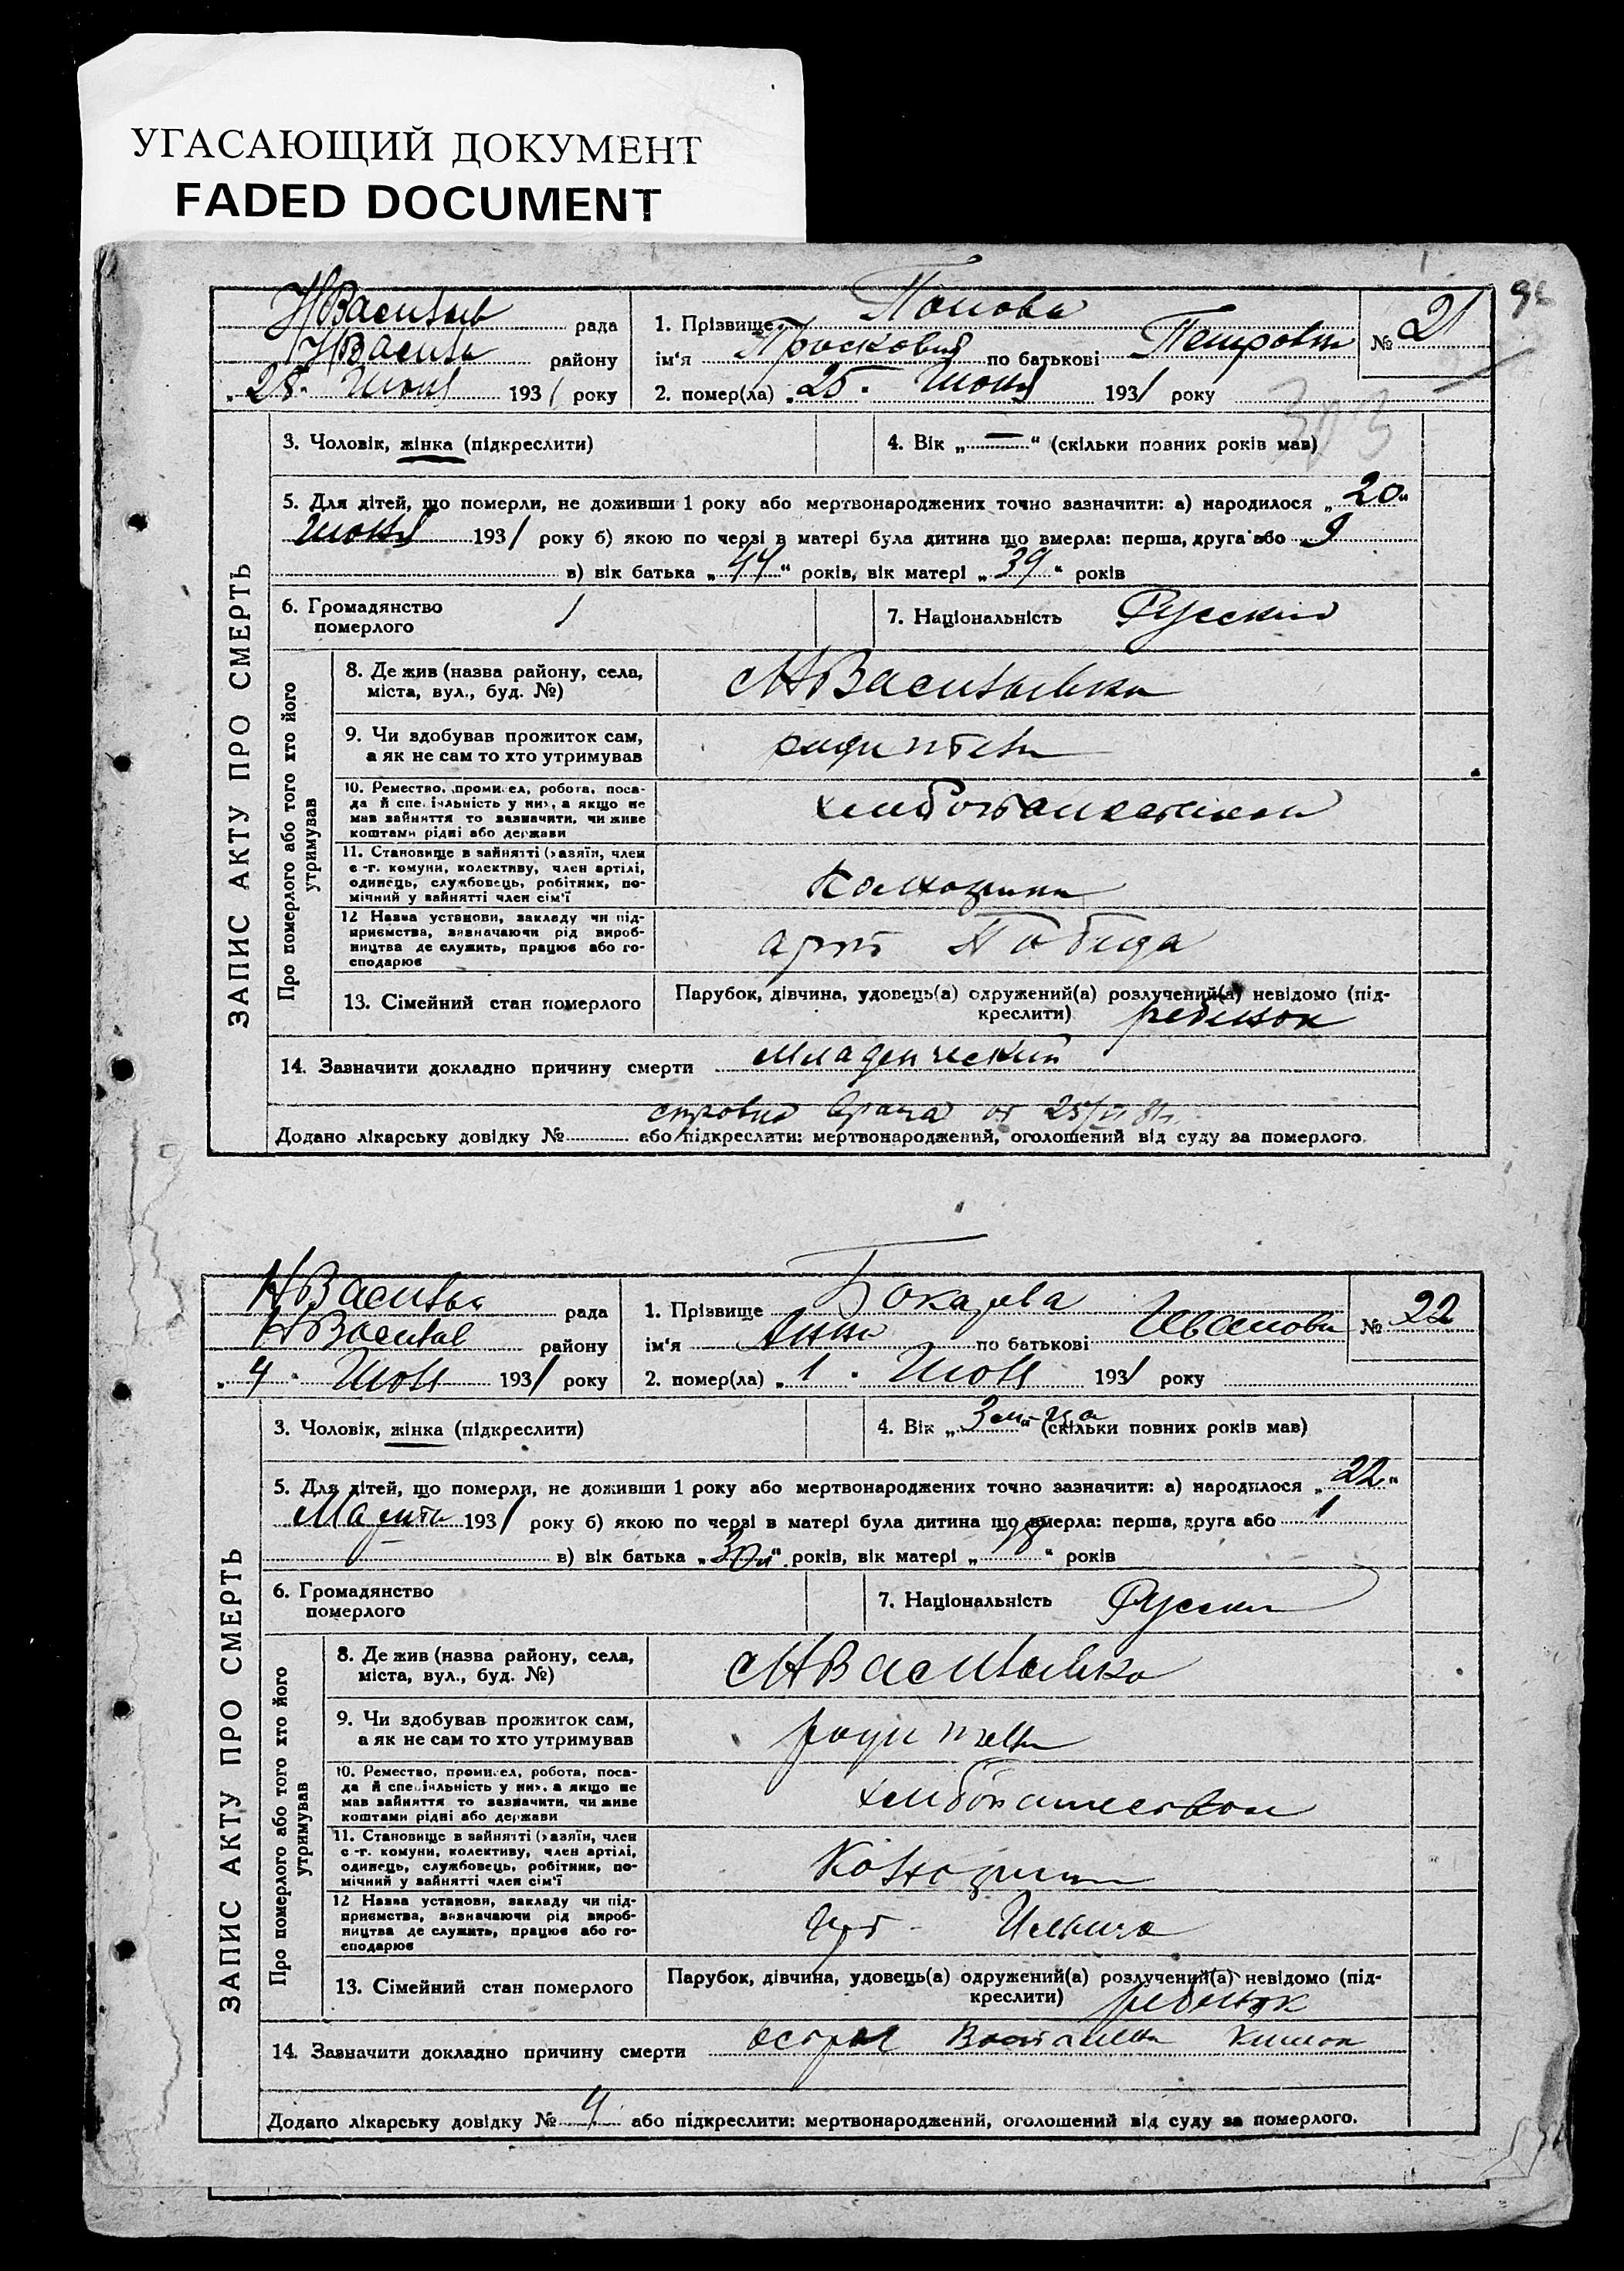 УГАСАЮЩИЙ ДОКУМЕНТ
FADED DOCUMENT
96
НВасильев рада
НВасиль району
„28" Июня 1931 року
1. Прізвище Попова
ім'я Просковия по батькові Петровн
2. помер(ла) „25" Июня 1931 року
№ 21
303
ЗАПИС АКТУ ПРО СМЕРТЬ
3. Чоловік, жінка (підкреслити)
4. Вік „—" (скільки повних років мав)
5. Для дітей, що померли, не доживши 1 року або мертвонароджених точно зазначити: а) народилося „20"
Июня 1931 року б) якою по черзі в матері була дитина що вмерла: перша, друга або 9
в) вік батька „44" років, вік матері „39" років
6. Громадянство
померлого
7. Національність Русский
Про померлого або того хто його
утримував
8. Де жив (назва району, села,
міста, вул., буд. №)
НВасильевка
9. Чи здобував прожиток сам,
а як не сам то хто утримував
родители
10. Ремество, промисел, робота, поса-
да й спеціяльність у них, а якщо не
мав зайняття то зазначити, чи живе
коштами рідні або держави
11. Становище в зайнятті (хазяїн, член
с.-г. комуни, колективу, член артілі,
одинець, службовець, робітник, по-
мічний у зайнятті член сім'ї
Колхозник
12 Назва установи, закладу чи під-
приємства, визначаючи рід вироб-
ництва де служить, працює або го-
сподарює
арт Победа
13. Сімейний стан померлого
Парубок, дівчина, удовець(а) одружений(а) розлучений(а) невідомо (під-
креслити) ребенок
14. Зазначити докладно причину смерти младенческий
врача от 25/VI 31
Додано лікарську довідку № або підкреслити: мертвонароджений, оголошений від суду за померлого.
НВасильев рада
НВасильев району
„4" Июл 1931 року
1. Прізвище
ім'я Анна по батькові Иванов
2. помер(ла) „1" Июл 1931 року
№ 22
ЗАПИС АКТУ ПРО СМЕРТЬ
3. Чоловік, жінка (підкреслити)
4. Вік „3 м-ца" (скільки повних років мав)
5. Для дітей, що померли, не доживши 1 року або мертвонароджених точно зазначити: а) народилося „22"
Марта 1931 року б) якою по черзі в матері була дитина що вмерла: перша, друга або 1
в) вік батька „30" років, вік матері „ " років
6. Громадянство
померлого
7. Національність Русски
Про померлого або того хто його
утримував
8. Де жив (назва району, села,
міста, вул., буд. №)
НВасильевка
9. Чи здобував прожиток сам,
а як не сам то хто утримував
родители
10. Ремество, промисел, робота, поса-
да й спеціяльність у них, а якщо не
мав зайняття то зазначити, чи живе
коштами рідні або держави
11. Становище в зайнятті (хазяїн, член
с.-г. комуни, колективу, член артілі,
одинець, службовець, робітник, по-
мічний у зайнятті член сім'ї
Колхозник
12 Назва установи, закладу чи під-
приємства, визначаючи рід вироб-
ництва де служить, працює або го-
сподарює
арт Ильича
13. Сімейний стан померлого
Парубок, дівчина, удовець(а) одружений(а) розлучений(а) невідомо (під-
креслити) ребенок
14. Зазначити докладно причину смерти острое воспален кишок
Додано лікарську довідку № 4 або підкреслити: мертвонароджений, оголошений від суду за померлого.